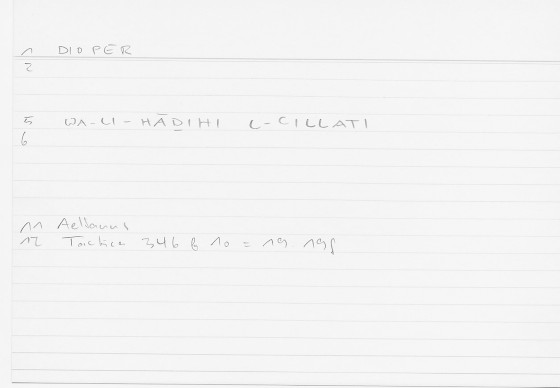 1 DIOPER
2
5 WA-LI-HĀḎIHI L-CILLATI
6
11 Aelianus
12 Tactica 346 b 10 = 19 19f